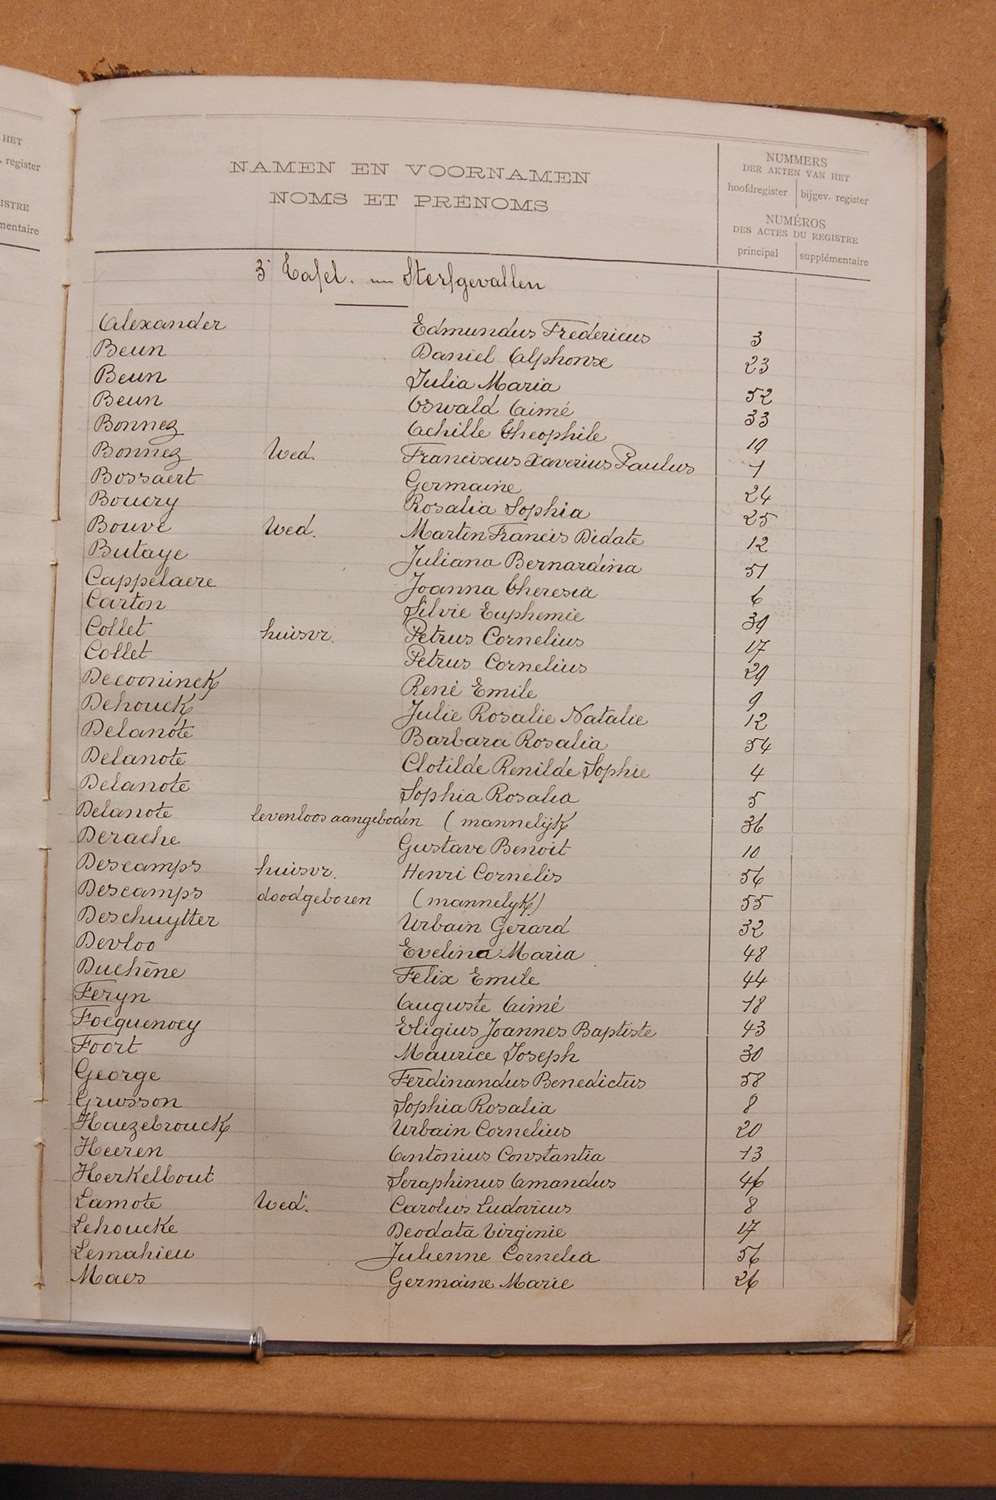 HET
. register
ISTRE
mentaire
NAMEN EN VOORNAMEN
NOMS ET PRÉNOMS
NUMMERS
DER AKTEN VAN HET
hoofdregister bijgev. register
NUMÉROS
DES ACTES DU REGISTRE
principal supplémentaire
3e Tafel. — Sterfgevallen
Alexander Edmundus Fredericus 3
Beun Daniel Alphonse 23
Beun Julia Maria 52
Beun Oswald Aimé 33
Bonnez Achille Theophile 19
Bonnez Wed. Franciscus Xaverius Paulus 7
Bossaert Germaine 24
Boucry Rosalia Sophia 25
Bouve Wed. Martin Francis Didate 12
Butaye Juliana Bernardina 51
Cappelaere Joanna Theresia 6
Carton Silvie Euphemie 39
Collet huisvr. Petrus Cornelius 17
Collet Petrus Cornelius 29
Decooninck René Emile 9
Dehouck Julie Rosalie Natalie 12
Delanote Barbara Rosalia 54
Delanote Clotilde Renilde Sophie 4
Delanote Sophia Rosalia 5
Delanote levenloos aangeboden (mannelijk 36
Derache Gustave Benoit 10
Descamps huisvr. Henri Cornelis 56
Descamps doodgeboren (mannelyk) 55
Deschuytter Urbain Gerard 32
Devloo Evelina Maria 48
Duchêne Felix Emile 44
Feryn Auguste Aimé 18
Focquenoey Eligius Joannes Baptiste 43
Foort Maurice Joseph 30
George Ferdinandus Benedictus 58
Gruwson Sophia Rosalia 8
Hauzebrouck Urbain Cornelius 20
Heeren Antonius Constantia 13
Herkelbout Seraphinus Amandus 46
Lamote Wed. Carolus Ludovicus 8
Lehoucke Deodata Virginie 17
Lemahieu Julienne Cornelia 56
Maes Germaine Marie 26